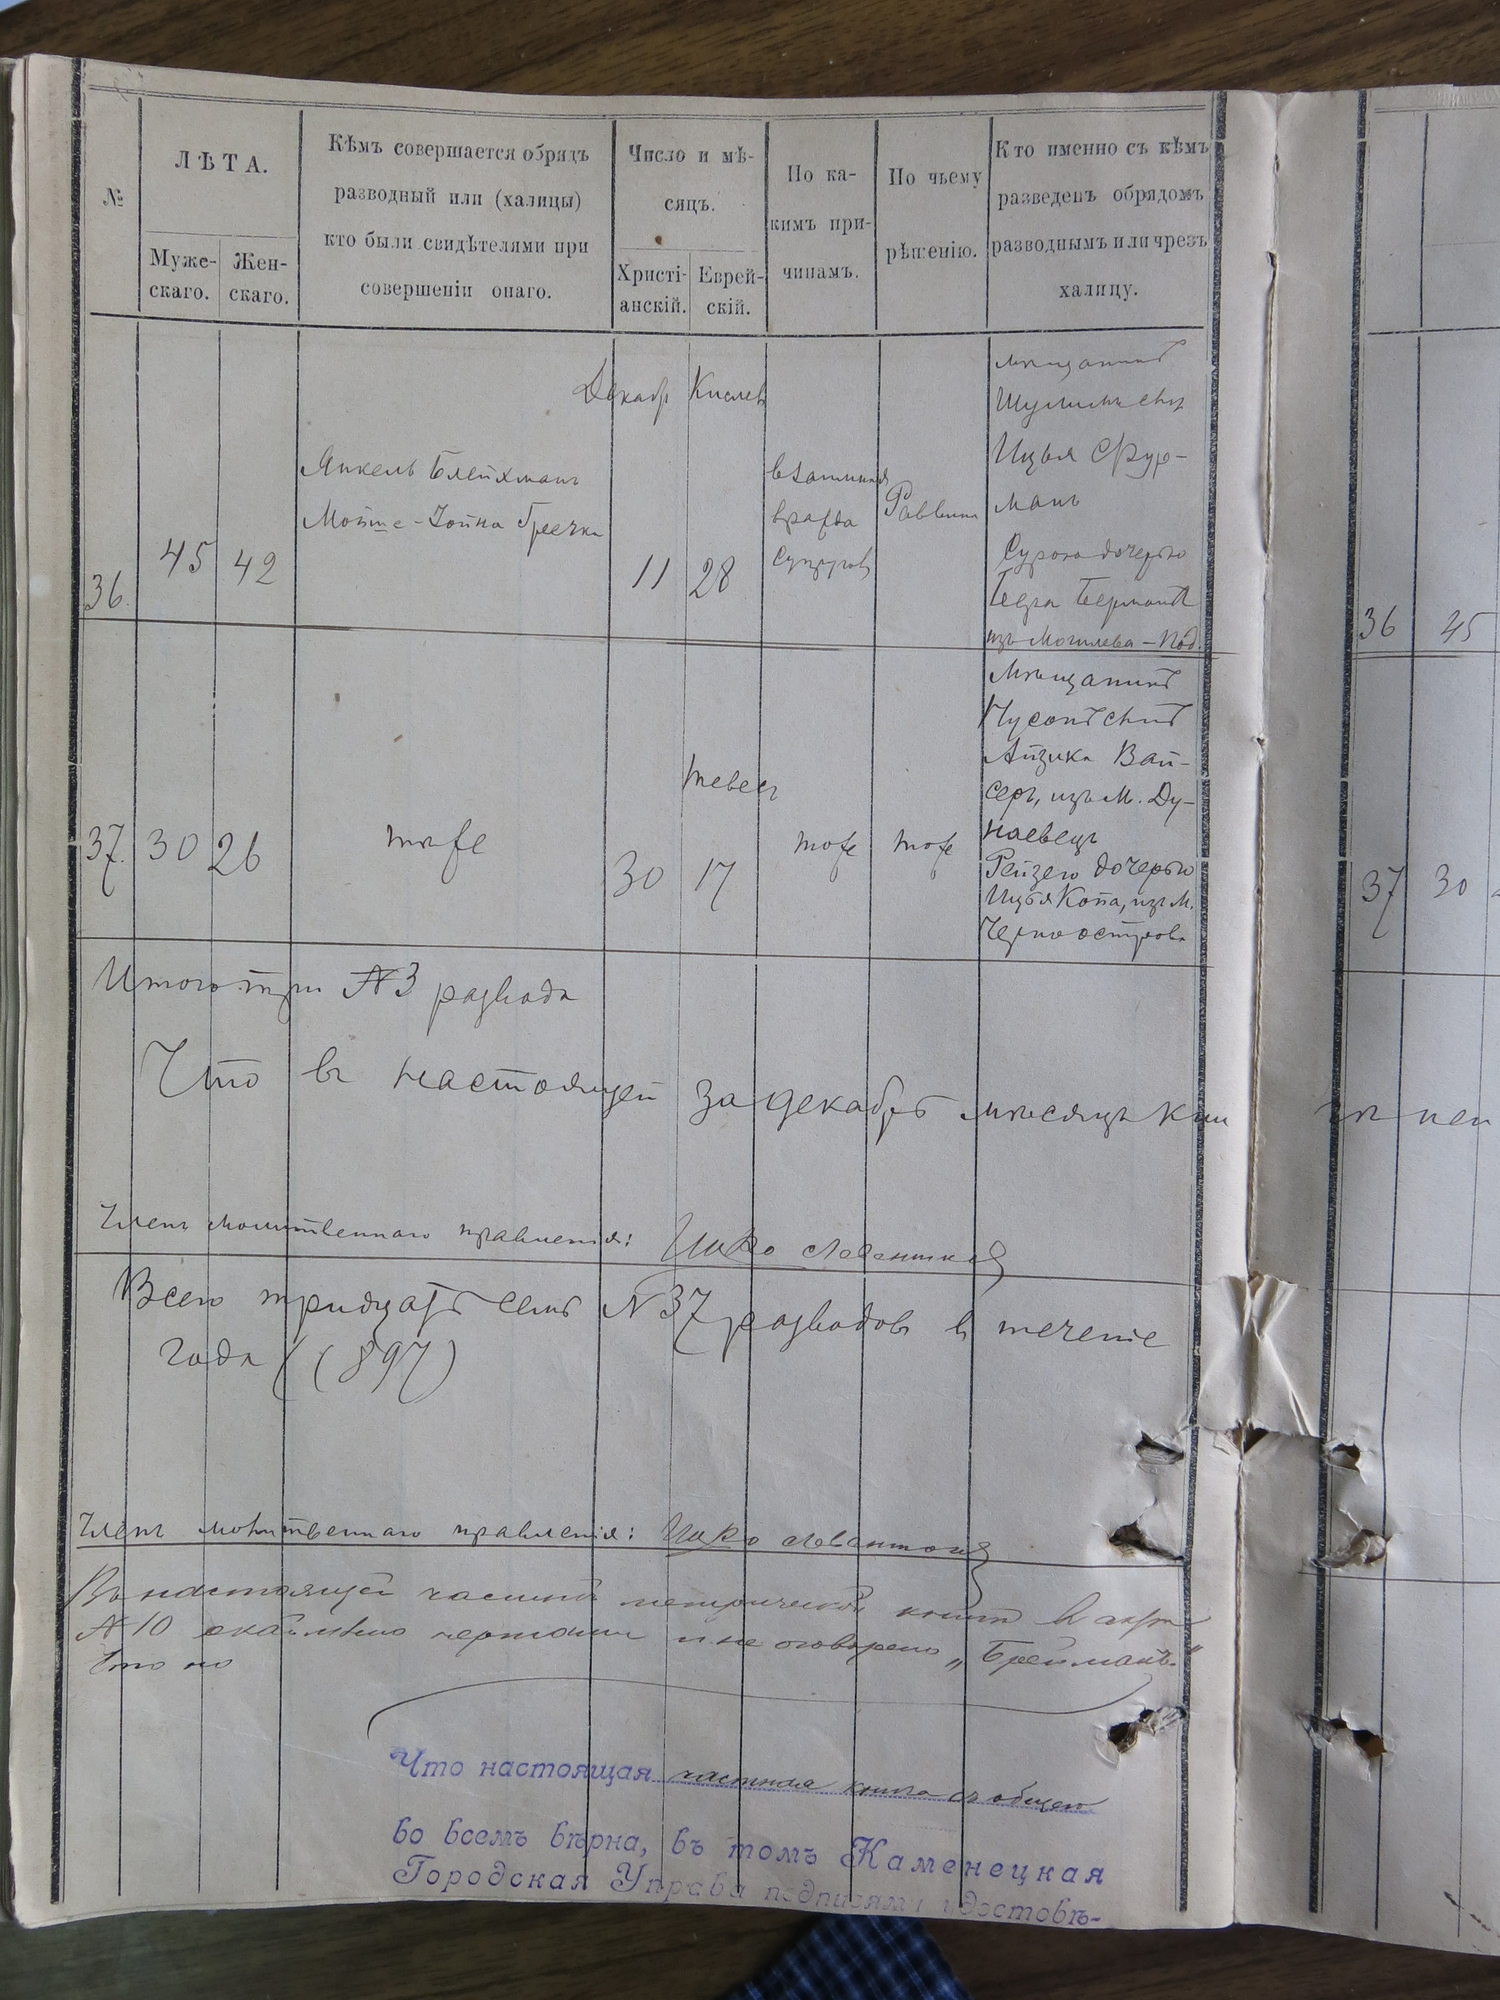 №
ЛѢТА.
Муже-
скаго.
Жен-
скаго.
Кѣмъ совершается обрядъ
разводный или (халицы)
кто были свидѣтелями при
совершеніи онаго.
Число и мѣ-
сяцъ.
Христі-
анскій.
Еврей-
скій.
По ка-
кимъ при-
чинамъ.
По чьему
рѣшенію.
Кто именно съ кѣмъ
разведенъ обрядомъ
разводнымъ или чрезъ
халицу.
36.
45
42
Янкель Блейхманъ
Мойше-Іойна Гречка
Декабр
11
Кислев
28
взаимная
вражда
супругов
Раввина
мѣщанинъ
Ицья Фур-
манъ
Сурою дочерью
Бермана
изъ Могилева-Под.
36
45
37.
30
26
тоже
30
тевес
17
тоже
тоже
Мѣщанинъ
Нусонъ сынъ
Айзика Вай-
серъ, изъ м. Ду-
наевецъ
Рейзею дочерью
Ицья Копа, изъ м.
Черноострова
37
30
Итого три №3 развода
Что въ настоящей за декабрь мѣсяцъ кни
Членъ молитвеннаго правленія:
Всего тридцать семь №37 разводовъ в теченіе
года (1897)
Членъ молитвеннаго правленія:
Въ настоящей частной метрической книгѣ в
№10 и не оговорено
Что настоящая частная книга съ общею
во всемъ вѣрна, въ томъ Каменецкая
Городская Управа подписями удостовѣ-